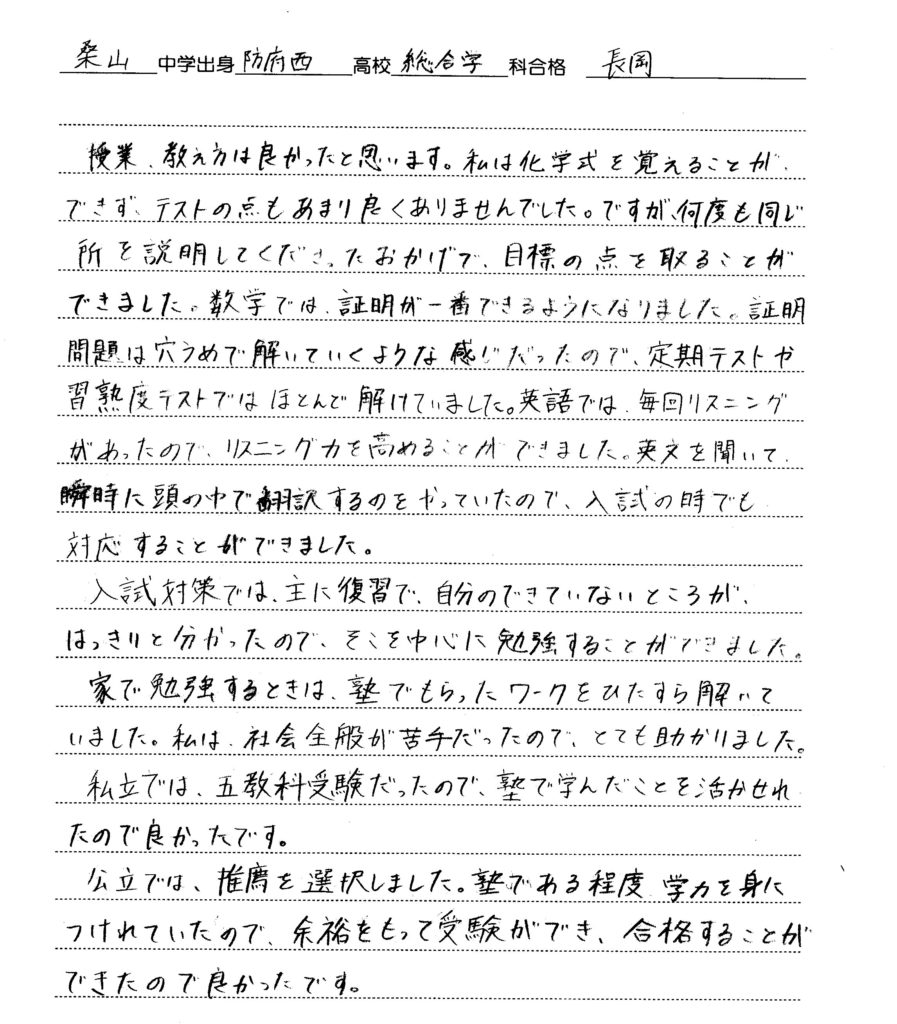 桑山 中学出身 防府西 高校 総合学 科合格 長岡
授業、教え方は良かったと思います。私は化学式を覚えることが、
できず、テストの点もあまり良くありませんでした。ですが、何度も同じ
所を説明してくださったおかげで、目標の点を取ることが
できました。数学では、証明が一番できるようになりました。証明
問題は穴うめで解いていくような感じだったので、定期テストや
習熟度テストではほとんど解けていました。英語では、毎回リスニング
があったので、リスニング力を高めることができました。英文を聞いて、
瞬時に頭の中で翻訳するのをやっていたので、入試の時でも
対応することができました。
入試対策では、主に復習で、自分のできていないところが、
はっきりと分かったので、そこを中心に勉強することができました。
家で勉強するときは、塾でもらったワークをひたすら解いて
いました。私は、社会全般が苦手だったので、とても助かりました。
私立では、五教科受験だったので、塾で学んだことを活かせれ
たので良かったです。
公立では、推薦を選択しました。塾である程度、学力を身に
つけれていたので、余裕をもって受験ができ、合格することが
できたので良かったです。